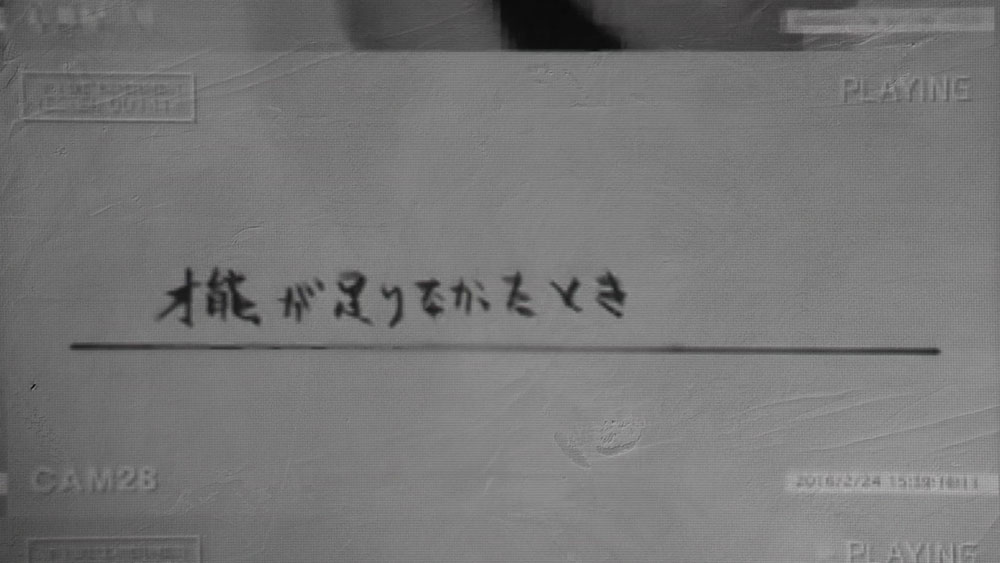 PLAYING
才能が足りなかったとき
CAM28
2016/2/24
PLAYING